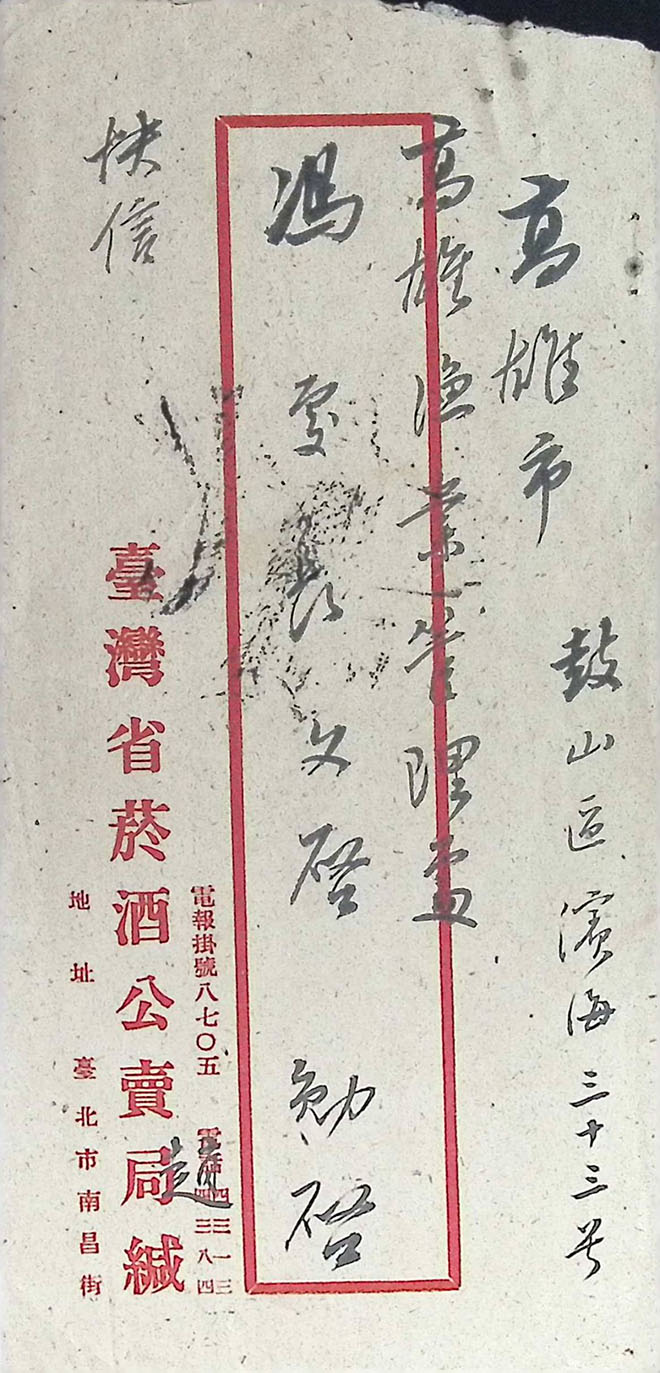 高雄市 鼓山區濱海三十三号
高雄漁業管理處
馮處長文啓 勛啓
快信
電報掛號八七〇五
臺灣省菸酒公賣局緘
趙
地址 臺北市南昌街